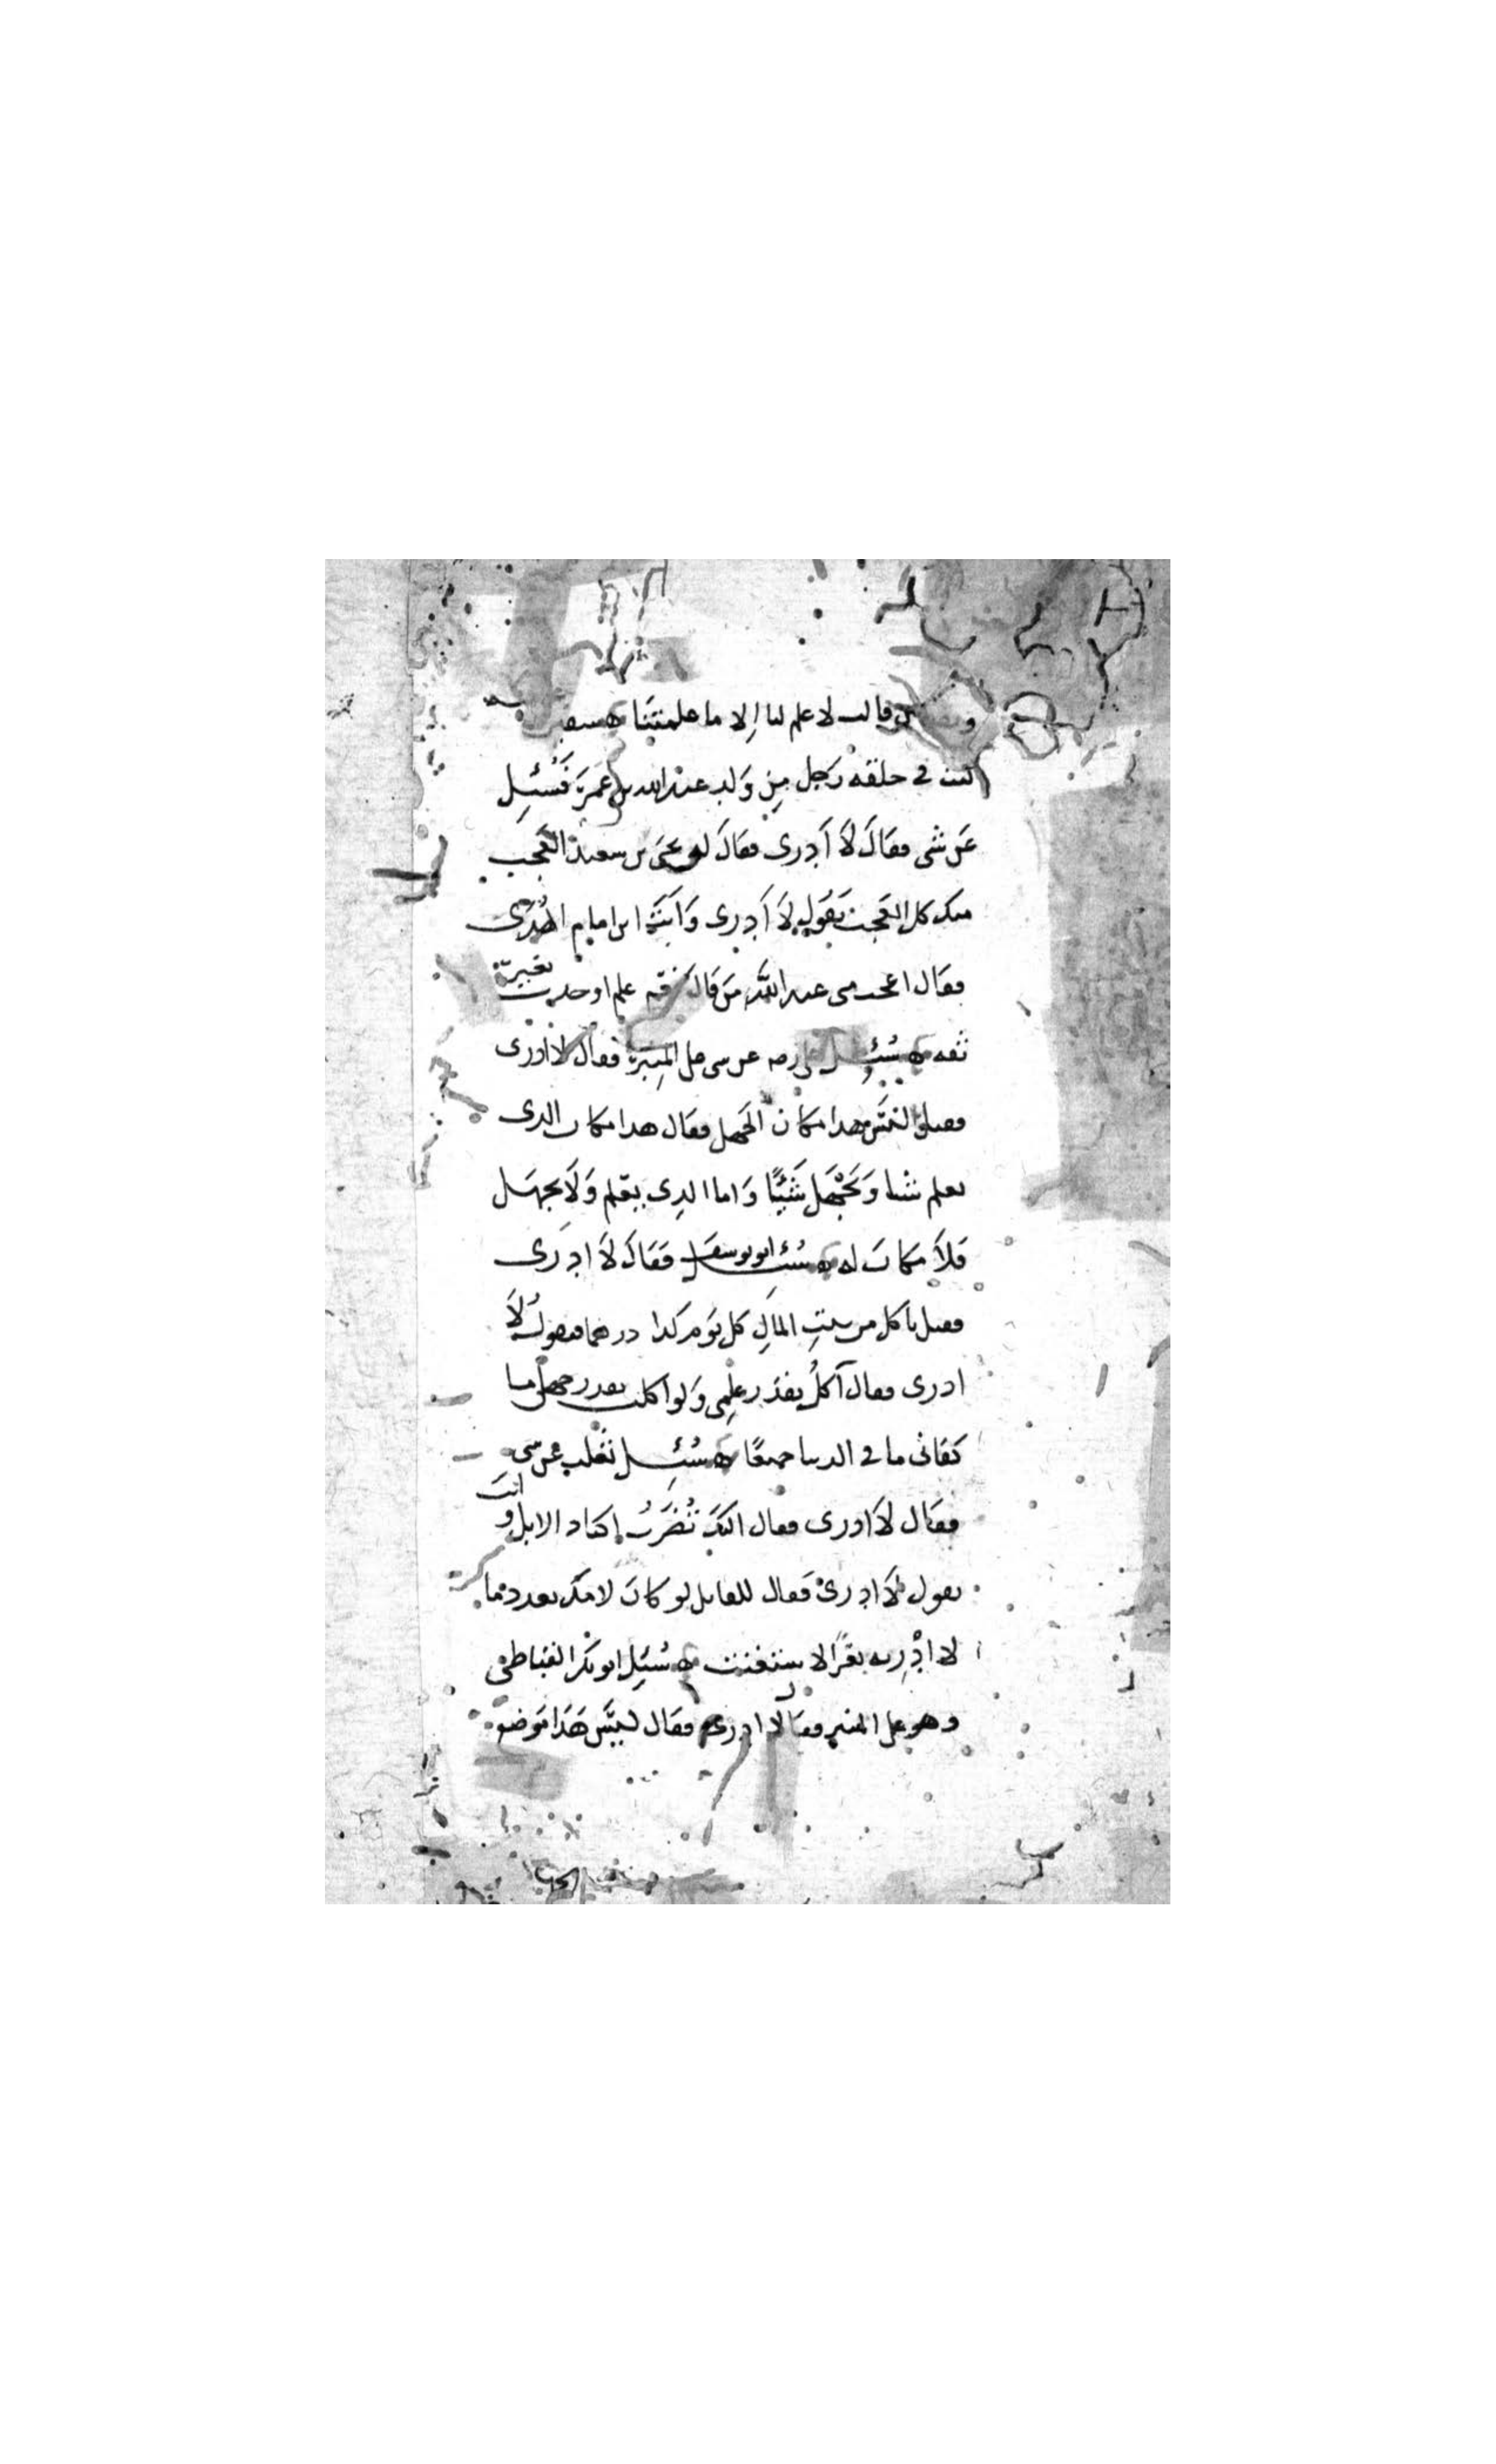 وقالت لا علم لنا الا ما علمتنا ه
كنت في حلقه رَجل مِن وَلدِ عبد الله بن عُمَر فَسُئِل
عَن شى فقالَ لَا أدرى فقالَ له يحيى بن سعيد العَجب
منك كل العَجب تَقول لَا أَدرى وَأنتَ ابن امام الهُدَى
فقال اعجب منى عند اللّه مَن قال بغير علم او حدث بغير
ثقه ه سُئِل على رضه عن سى على المِنبَر فقال لا ادرى
فقيل اليس هذا مكان الجَهل فقال هدا مكان الدى
يعلم شيا وَيَجْهَل شَيْئًا وَاما الدى يَعلم وَلَا يجهَل
فَلَا مكانَ له ه سُئل ابو يوسف فَقالَ لَا ادرى
فقيل تاكل من بيتِ المَالِ كل يَوم كدا درهما فتقولُ لَا
ادرى فقال آكلُ بقدر علمى وَلو اكلت بقدر جهلى ما
كفانى ما فى الدنيا جميعًا ه سُئِل ثعلب عن سى
فقال لَا ادرى فقال اليكَ تُضرَبُ اكباد الابل وانت
تقول لَا ادرى فقال للقائل لو كانَ لامك بعدد ما
لا ادْرِى بقرًا لاستغنت ه سُئِل ابو بكر
وهو على المنبر فقال لا ادرى فقال لَيسَ هَذا مَوضع